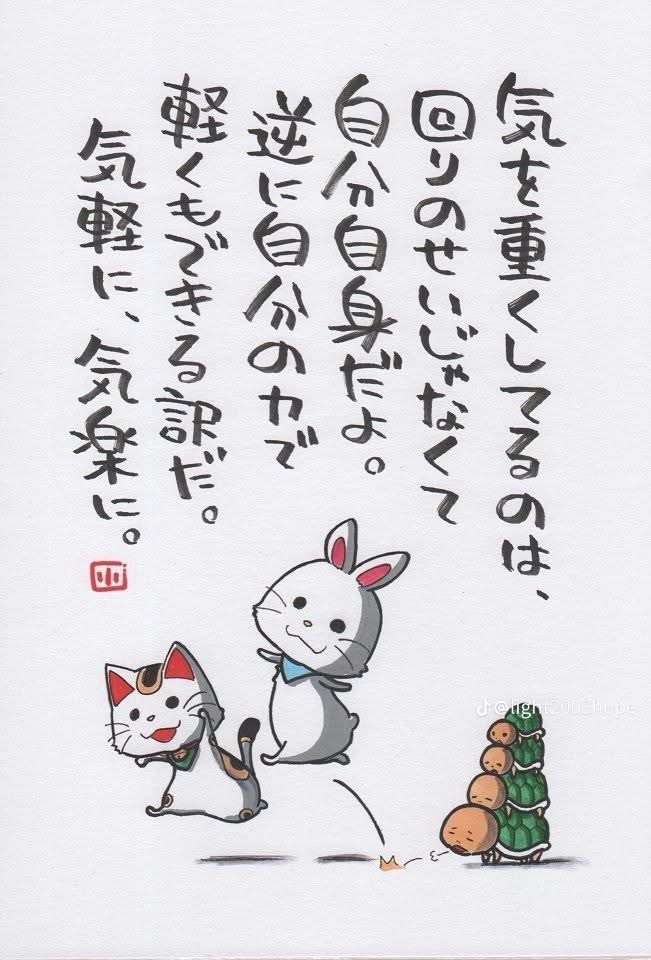 気を重くしてるのは、
回りのせいじゃなくて
自分自身だよ。
逆に自分の力で
軽くもできる訳だ。
気軽に、気楽に。
小
@light2003hope